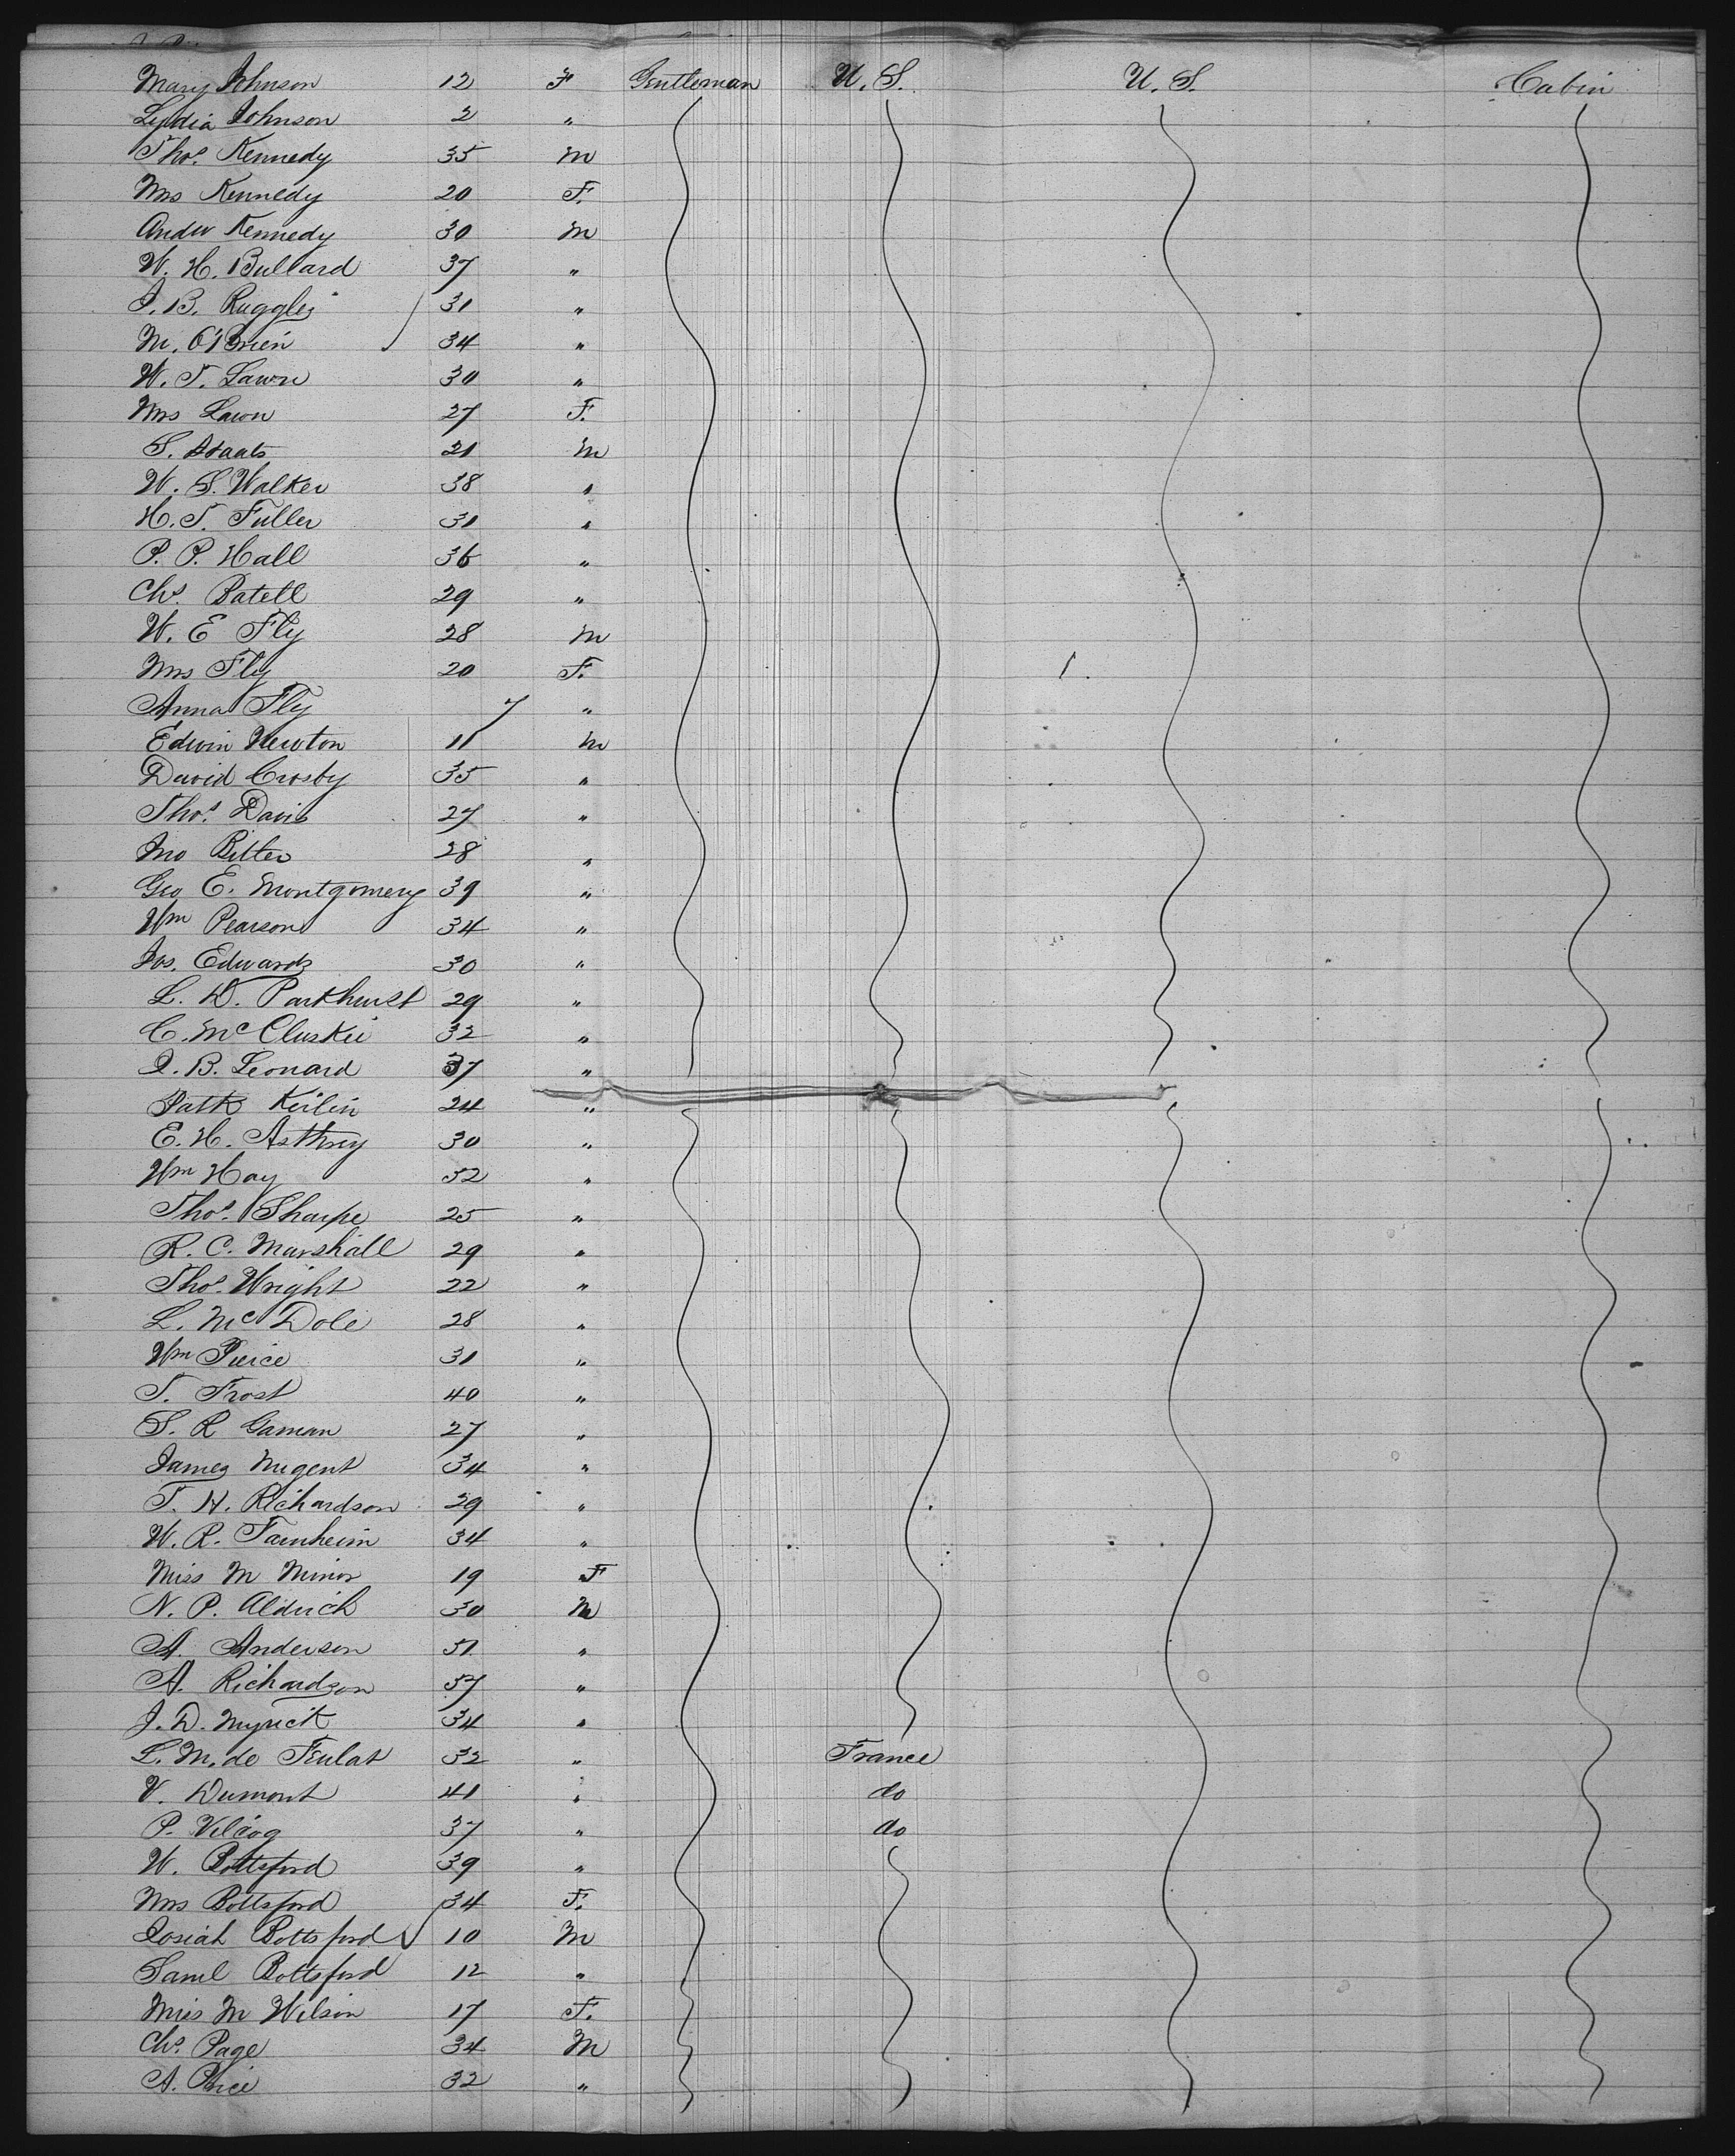 Mary Johnson 12 F Gentleman U.S. U.S. Cabin
Lydia Johnson 2 "
Thos. Kennedy 35 M
Mrs Kennedy 20 F.
Andw Kennedy 30 M
W. H. Bullard 37 "
J. B. Ruggles 31 "
M. O'Brien 34 "
W. T. Lawn 30 "
Mrs Lawn 27 F.
S. Staats 21 M
W. S. Walker 38 "
H. T. Fuller 31 "
P. P. Hall 36 "
Chs. Batell 29 "
W. E Fly 28 M
Mrs Fly 20 F. 1
Anna Fly 7 "
Edwin Newton 11 M
David Crosby 35 "
Thos. Davis 27 "
Jno Bitter 28 "
Geo E. Montgomery 39 "
Wm Pearson 34 "
Jos. Edwards 30 "
L. D. Parkhurst 29 "
C. McCluskie 32 "
J. B. Leonard 37 "
Patk Keilin 24 "
E. H. 30 "
Wm Hay 32 "
Thos. Sharpe 25 "
R. C. Marshall 29 "
Thos. Wright 22 "
L. McDole 28 "
Wm Pierce 31 "
T. Frost 40 "
S. R Gaman 27 "
James Nugent 34 "
T. H. Richardson 29 "
W. R. 34 "
Miss M Minor 19 F
N. P. Aldrich 30 M
A. Anderson 31 "
A. Richardson 37 "
J. D. Myrick 34 "
L. M. de 32 " France
V. Dumont 41 " do
P. 37 " do
W. Bottsford 39 "
Mrs Bottsford 34 F.
Josiah Bottsford 10 M
Saml Bottsford 12 "
Miss M Wilson 17 F.
Chs. Page 34 M
A. Price 32 "